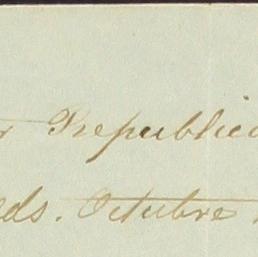 r Republica
lds. Octubre